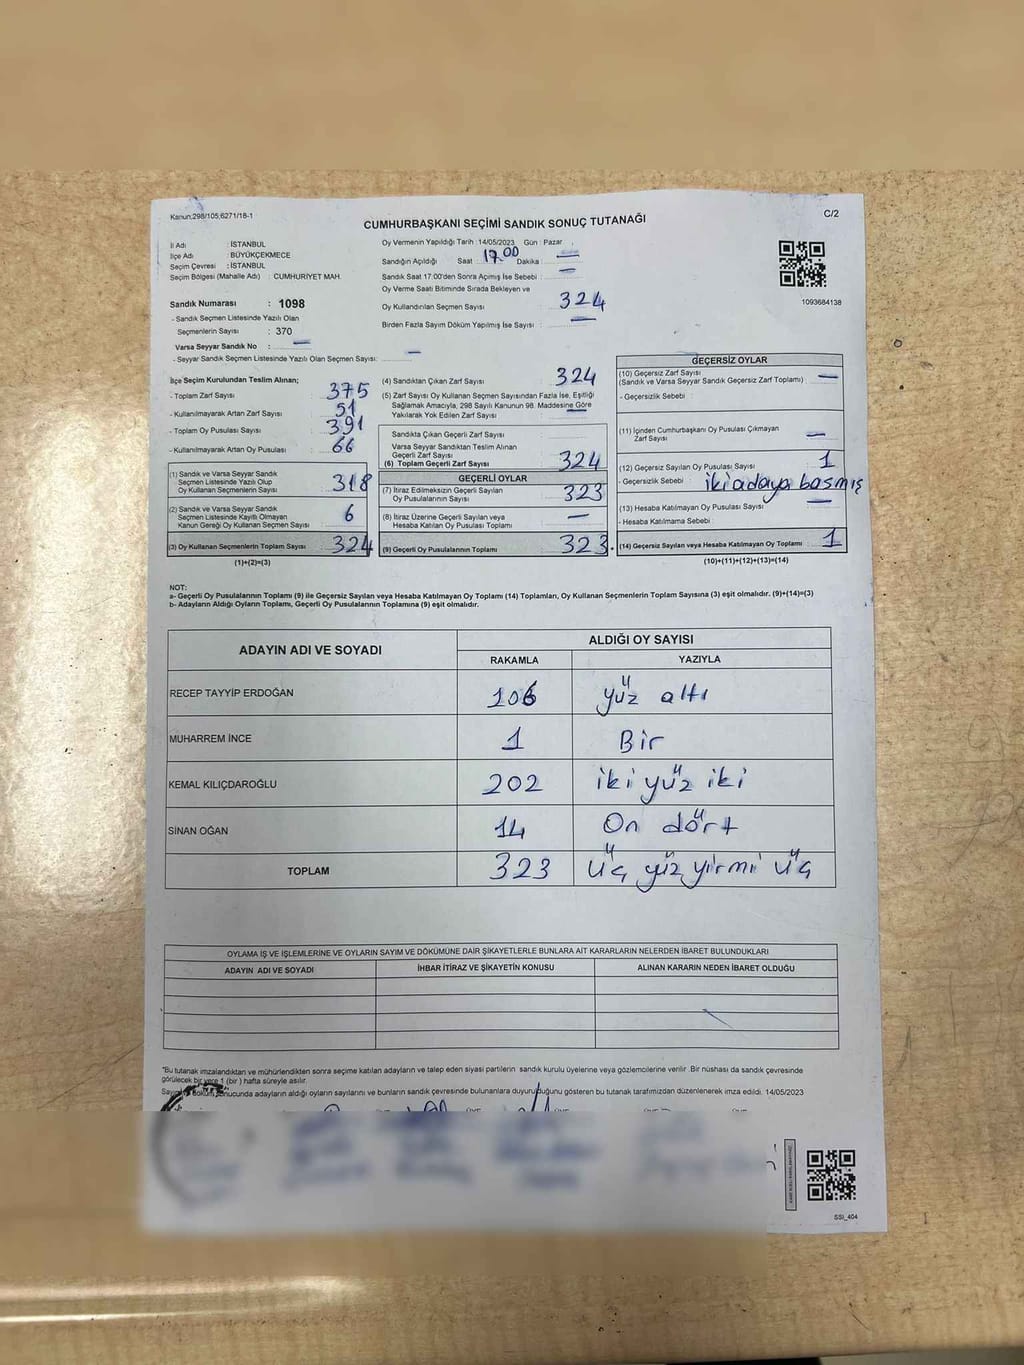 Kanun:298/105;6271/18-1
C/2
CUMHURBAŞKANI SEÇİMİ SANDIK SONUÇ TUTANAĞI
İl Adı : İSTANBUL
İlçe Adı : BÜYÜKÇEKMECE
Seçim Çevresi : İSTANBUL
Seçim Bölgesi (Mahalle Adı) : CUMHURİYET MAH.
Sandık Numarası : 1098
- Sandık Seçmen Listesinde Yazılı Olan
Seçmenlerin Sayısı : 370
Varsa Seyyar Sandık No : —
- Seyyar Sandık Seçmen Listesinde Yazılı Olan Seçmen Sayısı: —
Oy Vermenin Yapıldığı Tarih : 14/05/2023 Gün : Pazar
Sandığın Açıldığı Saat : 17.00 Dakika : —
Sandık Saat 17:00'den Sonra Açılmış İse Sebebi : —
Oy Verme Saati Bitiminde Sırada Bekleyen ve
Oy Kullandırılan Seçmen Sayısı : 324
Birden Fazla Sayım Döküm Yapılmış İse Sayısı : —
1093684138
İlçe Seçim Kurulundan Teslim Alınan;
- Toplam Zarf Sayısı : 375
- Kullanılmayarak Artan Zarf Sayısı : 51
- Toplam Oy Pusulası Sayısı : 391
- Kullanılmayarak Artan Oy Pusulası : 66
(1) Sandık ve Varsa Seyyar Sandık
Seçmen Listesinde Yazılı Olup
Oy Kullanan Seçmenlerin Sayısı : 318
(2) Sandık ve Varsa Seyyar Sandık
Seçmen Listesinde Kayıtlı Olmayan
Kanun Gereği Oy Kullanan Seçmen Sayısı : 6
(3) Oy Kullanan Seçmenlerin Toplam Sayısı : 324
(1)+(2)=(3)
(4) Sandıktan Çıkan Zarf Sayısı : 324
(5) Zarf Sayısı Oy Kullanan Seçmen Sayısından Fazla İse, Eşitliği
Sağlamak Amacıyla, 298 Sayılı Kanunun 98. Maddesine Göre
Yakılarak Yok Edilen Zarf Sayısı : —
Sandıkta Çıkan Geçerli Zarf Sayısı :
Varsa Seyyar Sandıktan Teslim Alınan
Geçerli Zarf Sayısı :
(6) Toplam Geçerli Zarf Sayısı : 324
GEÇERLİ OYLAR
(7) İtiraz Edilmeksizin Geçerli Sayılan
Oy Pusulalarının Sayısı : 323
(8) İtiraz Üzerine Geçerli Sayılan veya
Hesaba Katılan Oy Pusulası Toplamı : —
(9) Geçerli Oy Pusulalarının Toplamı : 323.
GEÇERSİZ OYLAR
(10) Geçersiz Zarf Sayısı : —
(Sandık ve Varsa Seyyar Sandık Geçersiz Zarf Toplamı)
- Geçersizlik Sebebi :
(11) İçinden Cumhurbaşkanı Oy Pusulası Çıkmayan
Zarf Sayısı : —
(12) Geçersiz Sayılan Oy Pusulası Sayısı : 1
- Geçersizlik Sebebi : iki adaya basmış
(13) Hesaba Katılmayan Oy Pusulası Sayısı : —
- Hesaba Katılmama Sebebi :
(14) Geçersiz Sayılan veya Hesaba Katılmayan Oy Toplamı : 1
(10)+(11)+(12)+(13)=(14)
NOT:
a- Geçerli Oy Pusulalarının Toplamı (9) ile Geçersiz Sayılan veya Hesaba Katılmayan Oy Toplamı (14) Toplamları, Oy Kullanan Seçmenlerin Toplam Sayısına (3) eşit olmalıdır. (9)+(14)=(3)
b- Adayların Aldığı Oyların Toplamı, Geçerli Oy Pusulalarının Toplamına (9) eşit olmalıdır.
ADAYIN ADI VE SOYADI
ALDIĞI OY SAYISI
RAKAMLA YAZIYLA
RECEP TAYYİP ERDOĞAN 106 yüz altı
MUHARREM İNCE 1 Bir
KEMAL KILIÇDAROĞLU 202 iki yüz iki
SİNAN OĞAN 14 On dört
TOPLAM 323 Üç yüz yirmi üç
OYLAMA İŞ VE İŞLEMLERİNE VE OYLARIN SAYIM VE DÖKÜMÜNE DAİR ŞİKAYETLERLE BUNLARA AİT KARARLARIN NELERDEN İBARET BULUNDUKLARI
ADAYIN ADI VE SOYADI İHBAR İTİRAZ VE ŞİKAYETİN KONUSU ALINAN KARARIN NEDEN İBARET OLDUĞU
"Bu tutanak imzalandıktan ve mühürlendikten sonra seçime katılan adayların ve talep eden siyasi partilerin sandık kurulu üyelerine veya gözlemcilerine verilir. Bir nüshası da sandık çevresinde
görülecek bir yere 1 (bir) hafta süreyle asılır.
sonucunda adayların aldığı oyların sayılarını ve bunların sandık çevresinde bulunanlara duyurulduğunu gösteren bu tutanak tarafımızdan düzenlenerek imza edildi. 14/05/2023
SSI_404